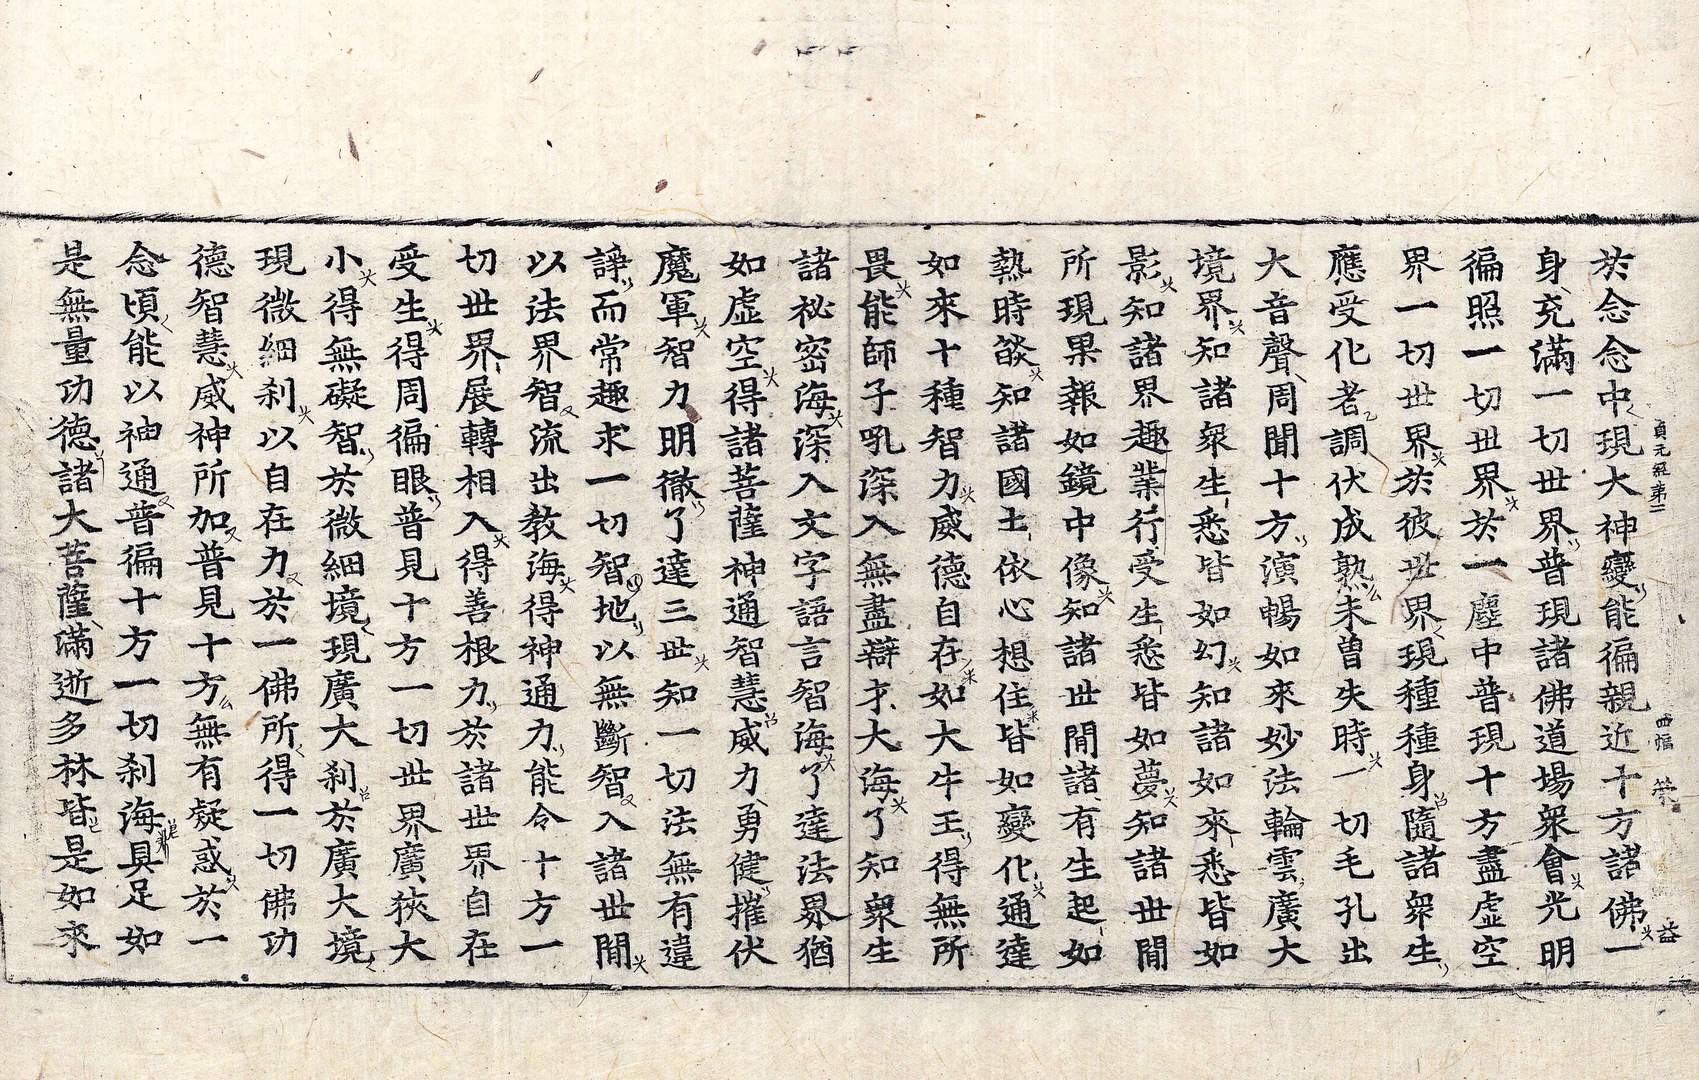 於念念中現大神變能徧親近十方諸佛一
貞元經第二 四幅 榮 益
身充滿一切世界普現諸佛道場衆會光明
徧照一切世界於一塵中普現十方盡虛空
界一切世界於彼世界現種種身隨諸衆生
應受化者調伏成熟未曾失時一切毛孔出
大音聲周聞十方演暢如來妙法輪雲廣大
境界知諸衆生悉皆如幻知諸如來悉皆如
影知諸界趣業行受生悉皆如夢知諸世間
所現果報如鏡中像知諸世間諸有生起如
熱時燄知諸國土依心想住皆如變化通達
如來十種智力威德自在如大牛王得無所
畏能師子吼深入無盡辯才大海了知衆生
諸祕密海深入文字語言智海了達法界猶
如虛空得諸菩薩神通智慧威力勇健摧伏
魔軍智力明徹了達三世知一切法無有違
諍而常趣求一切智地以無斷智入諸世間
以法界智流出教海得神通力能令十方一
切世界展轉相入得善根力於諸世界自在
受生得周徧眼普見十方一切世界廣狹大
小得無礙智於微細境現廣大刹於廣大境
現微細刹以自在力於一佛所得一切佛功
德智慧威神所加普見十方無有疑惑於一
念頃能以神通普徧十方一切刹海具足如
是無量功德諸大菩薩滿逝多林皆是如來